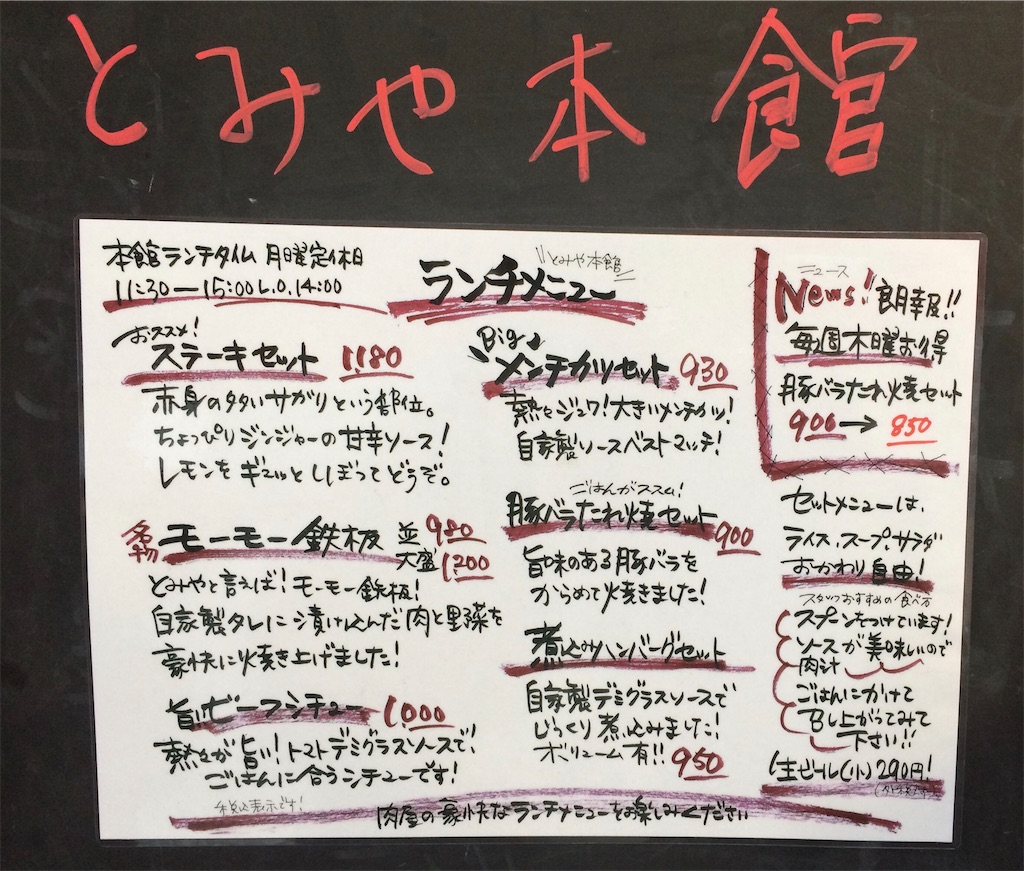 とみや本館
本館ランチタイム 月曜定休日
11:30―15:00 L.O.14:00
とみや本館
ランチメニュー
おススメ!
ステーキセット 1,180
赤身の多いサガリという部位。
ちょっぴりジンジャーの甘辛ソース!
レモンをギュッとしぼってどうぞ。
名物 モーモー鉄板 並 980
大盛 1,200
とみやと言えば!モーモー鉄板!
自家製タレに漬け込んだ肉と野菜を
豪快に焼き上げました!
旨いビーフシチュー 1,000
熱々が旨い!トマトデミグラスソースで!
ごはんに合うシチューです!
Big♪
メンチカツセット 930
熱々ジュワ!大きいメンチカツ!
自家製ソースベストマッチ!
ごはんがススム!
豚バラたれ焼セット 900
旨味のある豚バラを
からめて焼きました!
煮込みハンバーグセット
自家製デミグラスソースで
じっくり煮込みました!
ボリューム有!! 950
ニュース
News! 朗報!!
毎週木曜お得
豚バラたれ焼セット
900→850
セットメニューは、
ライス、スープ、サラダ
おかわり自由!
スタッフおすすめの食べ方
スプーンをつけています!
ソースが美味しいので
肉汁
ごはんにかけて
召し上がってみて
下さい!!
生ビール(小)290円!
税込表示です!
肉屋の豪快なランチメニューをお楽しみください